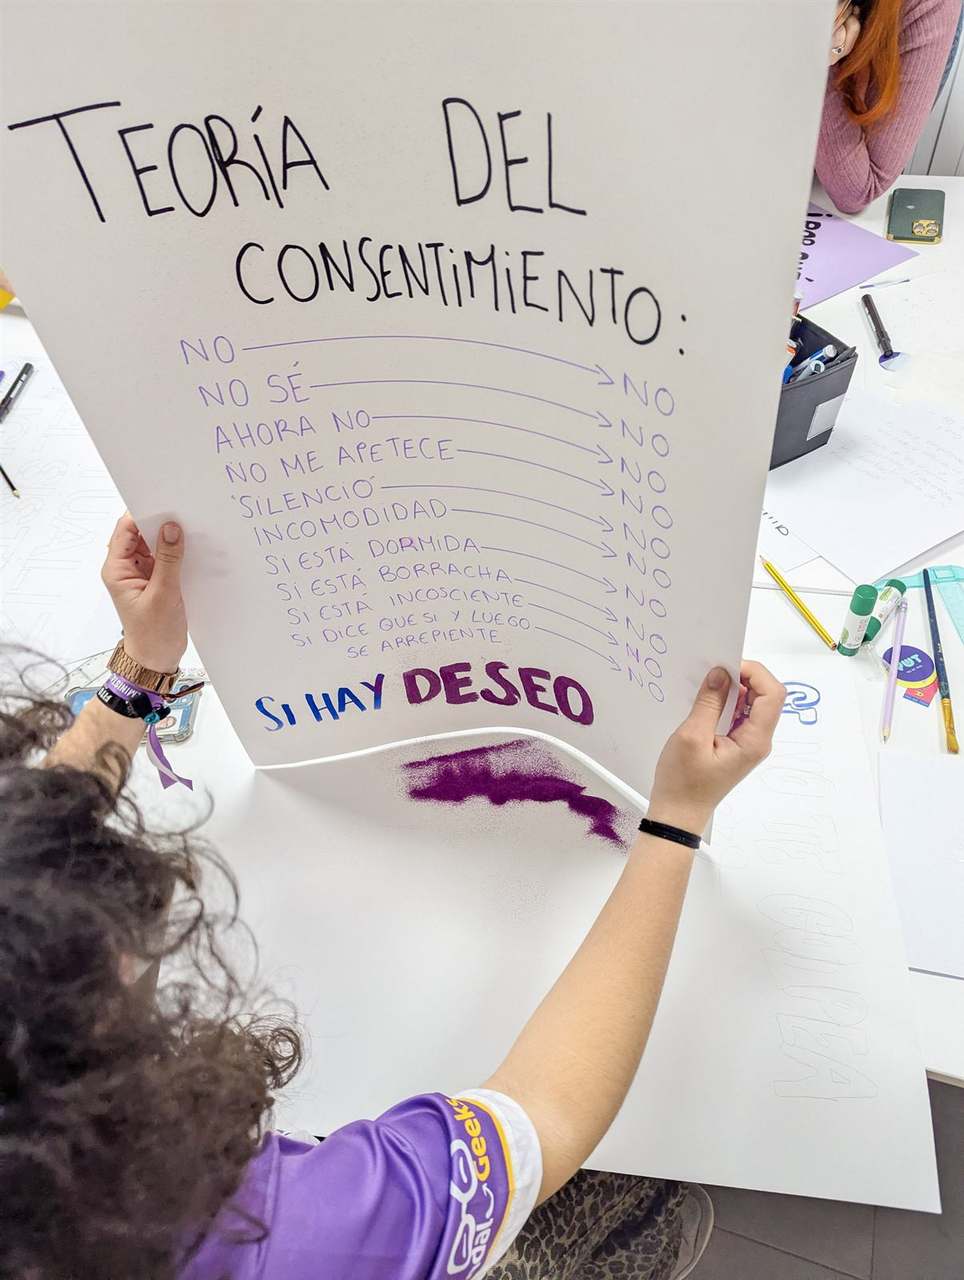 TEORÍA DEL
CONSENTIMIENTO:
NO NO
NO SÉ NO
AHORA NO NO
NO ME APETECE NO
'SILENCIO' NO
INCOMODIDAD NO
SI ESTÁ DORMIDA NO
SI ESTÁ BORRACHA NO
SI ESTÁ INCOSCIENTE NO
SI DICE QUE SI Y LUEGO NO
SE ARREPIENTE
SI HAY DESEO
Geeks
CULPA